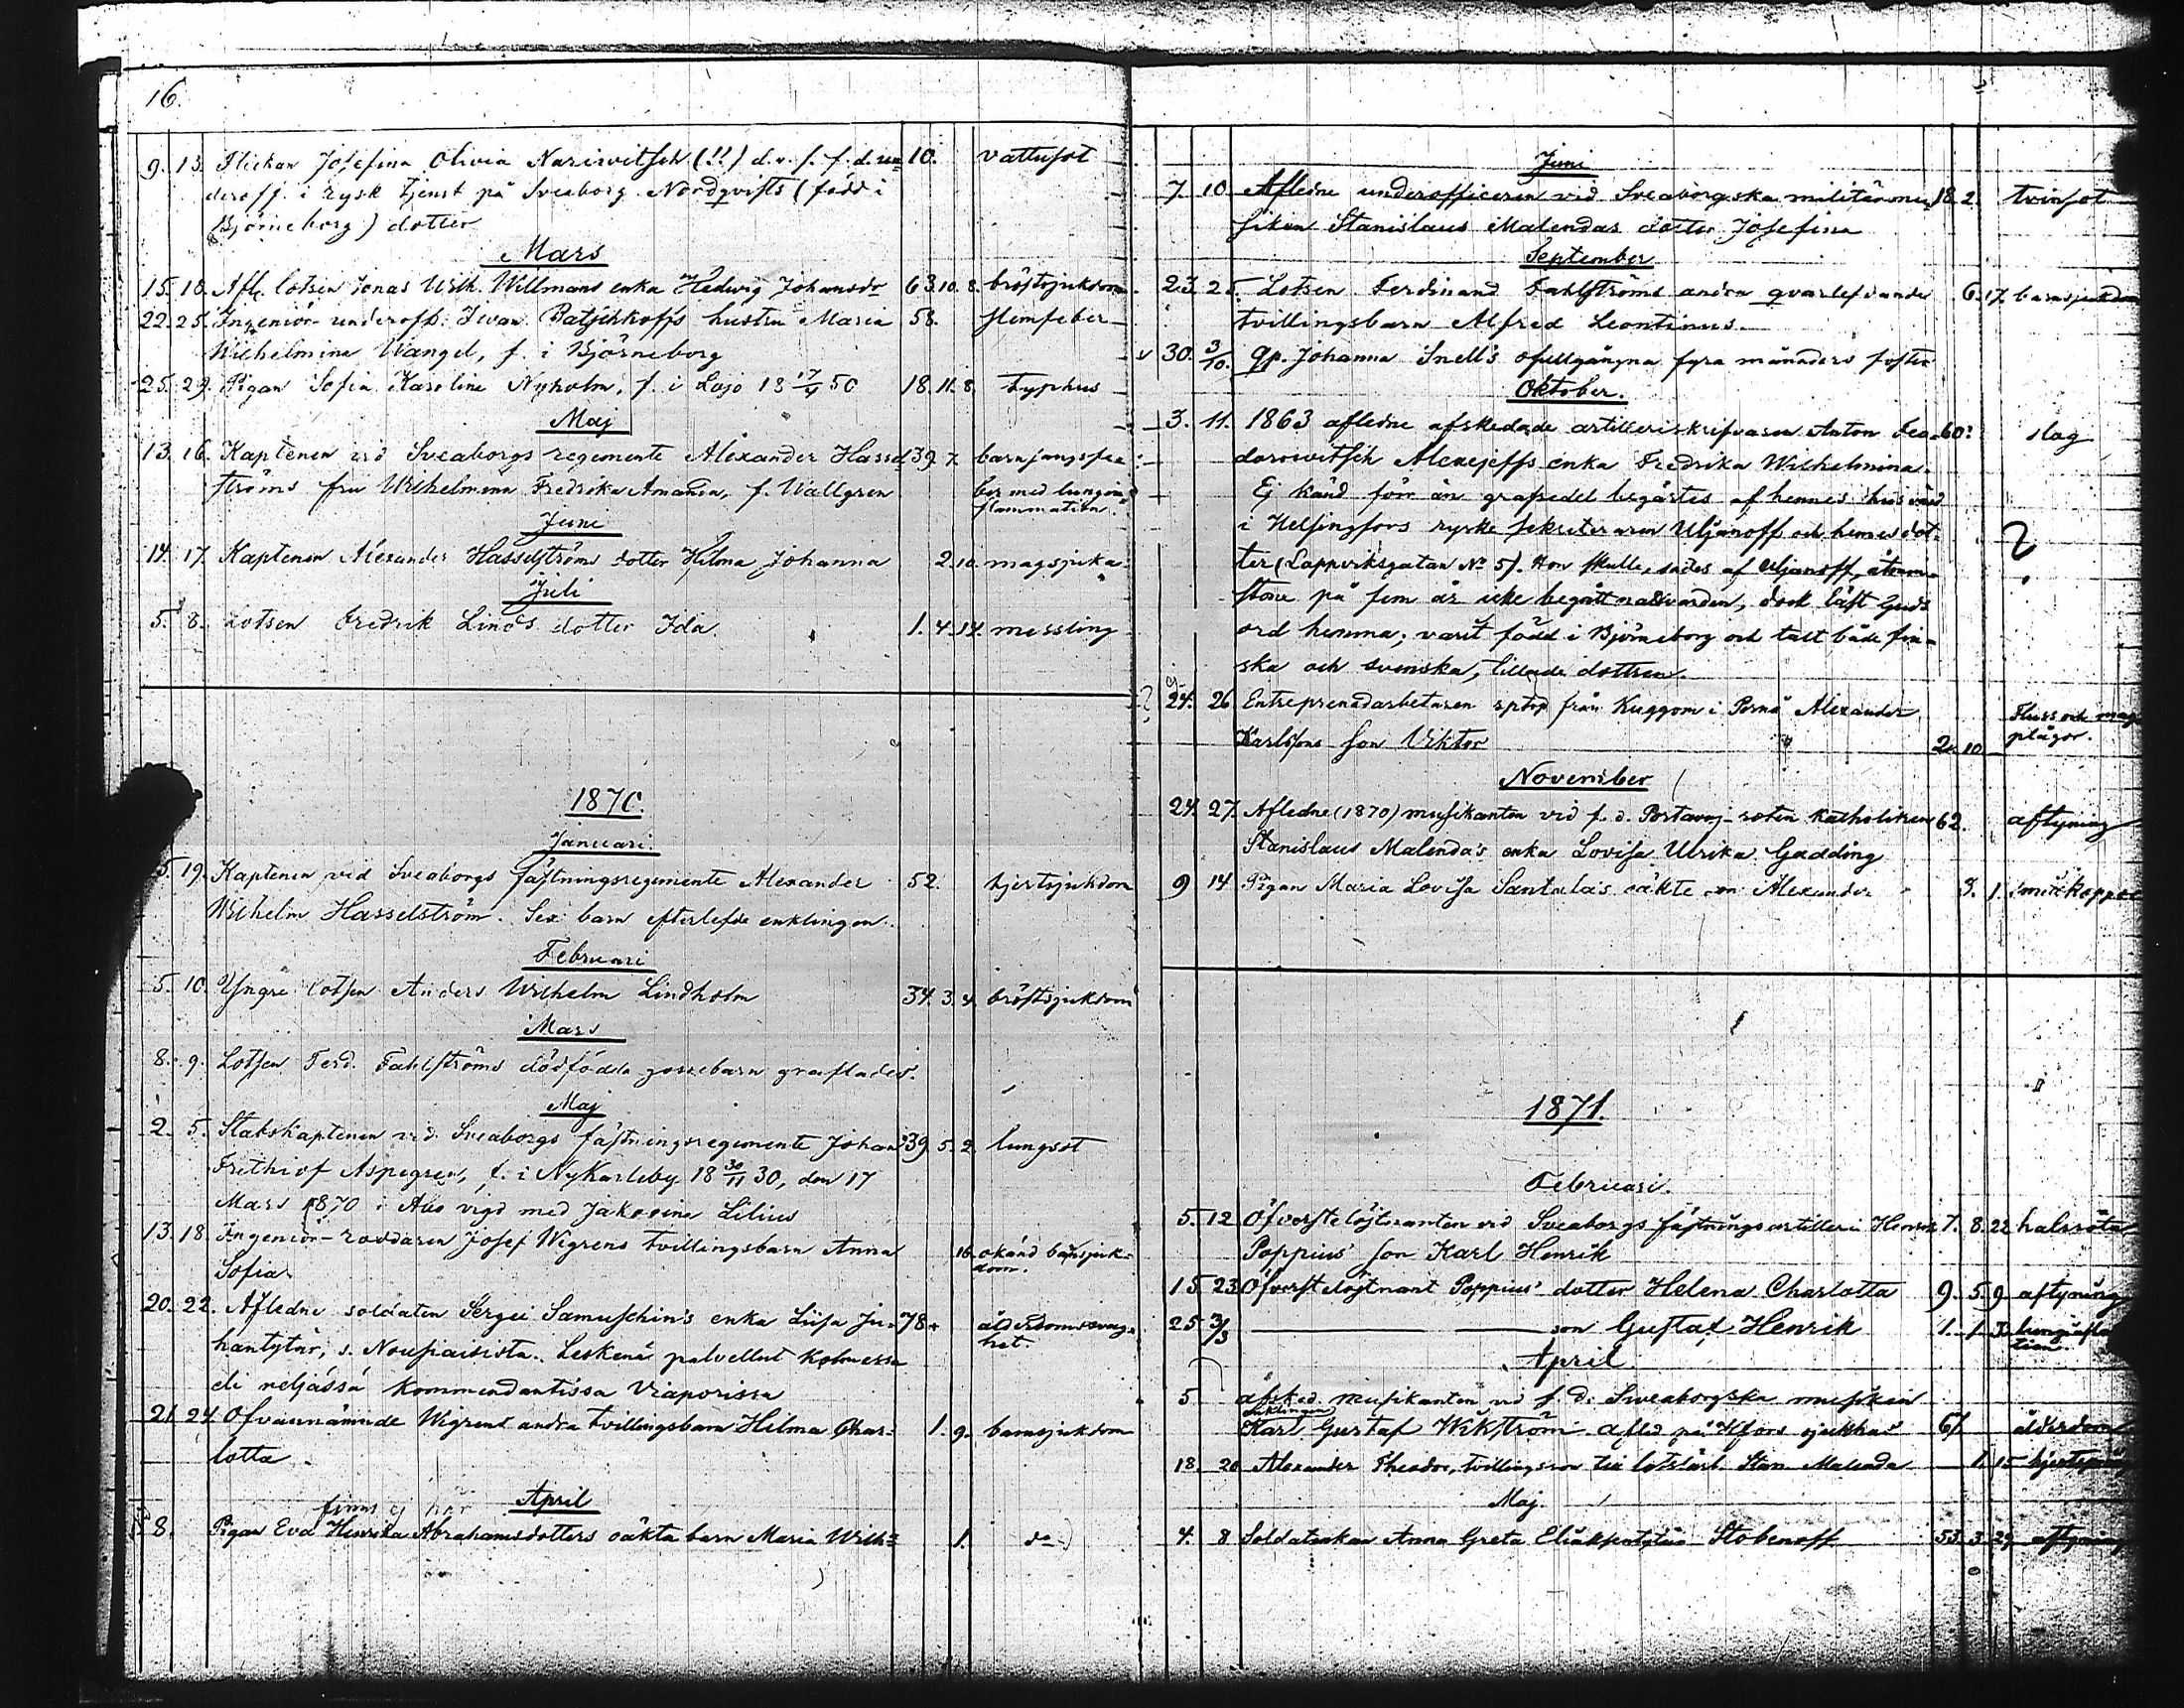 16.
9. 13. Flickan Josefina Olivia Narisvitsch (!!) d.v.s. f.d. un= 10. vattusot
deroff. i rysk tjenst på Sveaborg Nordqvists (född i
Björneborg) dotter
Mars
15. 18. Afl. lotsen Jonas Wilh. Willmans enka Hedwig Johansdr 63. 10. 8. bröstsjukdom
22. 25. Ingeniör-underoff. Iwan Batschkoffs hustru Maria 58. slemfeber
Wilhelmina Wangel, f. i Björneborg
25. 29. Pigan Sofia Karolina Nyholm, f. i Lojo 18 17/4 50 18. 11. 8. typhus
Maj
13. 16. Kaptenen vid Sveaborgs regemente Alexander Hassel= 39. 7. barnsängsfe=
ströms fru Wilhelmina Fredrika Amanda, f. Wallgren ber med lungin=
flammation.
Juni
14. 17. Kaptenen Alexander Hasselströms dotter Hilma Johanna 2. 10. magsjuka
Juli
5. 8. Lotsen Fredrik Linds dotter Ida 1. 4. 14. messling
1870.
Januari.
15. 19. Kaptenen vid Sveaborgs fästningsregemente Alexander 52. hjertsjukdom
Wilhelm Hasselström. Sex barn efterlefde enklingen.
Februari
5. 10. Yngre lotsen Anders Wilhelm Lindholm 34. 3. 4. bröstsjukdom
Mars
8. 9. Lotsen Ferd. Fahlströms dödfödda gossebarn graflades.
Maj
2. 5. Stabskaptenen vid Sveaborgs fästningsregemente Johan 39. 5. 2. lungsot
Frithiof Aspegren, f. i NyKarleby 18 30/11 30, den 17
Mars 1870 i Åbo vigd med Jakobina Lilius
13. 18. Ingeniör-roddaren Josef Wigrens tvillingsbarn Anna 16. okänd barnsjuk=
Sofia. dom.
20. 22. Afledne soldaten Sergei Samuschin's enka Liisa Ju= 78. ålderdomssvag=
hantytär, s. Nousiaisista. Leskenä palvellut kolmessa het.
eli neljässä kommendantissa Viaporissa
21. 24. Ofvannämnde Wigrens andra tvillingsbarn Hilma Char= 1. 9. barnsjukdom
lotta.
finns ej här April
8. Pigan Eva Henrika Abrahamsdotters oäkta barn Maria Wilh= 1. do
Juni
7. 10. Afledne underofficeren vid Sveaborgska militärmu= 18. 2. tvinsot
siken Stanislaus Malendas dotter Josefina
September
23. 25. Lotsen Ferdinand Fahlströms andra qvarlefvande 6. 17. barnsjukdom
tvillingsbarn Alfred Leontinus.
30. 3/10. Qp. Johanna Snell's ofullgångna fyra månaders foster
Oktober.
3. 11. 1863 afledne afskedade artilleriskrifvaren Anton Feo= 60? slag
dorowitsch Alexejeffs enka Fredrika Wilhelmina.
Ej känd förr än grafsedel begärtes af hennes husvärd
i Helsingfors ryske sekreteraren Uljanoff och hennes dot=
ter (Lappviksgatan No 5). Hon skulle, sades af Uljanoff, åtmin=
stone på fem år icke begått nattvarden, dock läst Guds
ord hemma; varit född i Björneborg och talt både fin=
ska och svenska, tillade dottren.
?
24. 26 Entreprenadarbetaren från Kuggom i Pernå Alexander Fluss och mag
Karlssons son Viktor 2. 10 plågor.
November
24. 27. Afledne (1870) musikanten vid f.d. katholiken 62. aftyning
Stanislaus Malenda's enka Lovisa Ulrika Gadding
9 14 Pigan Maria Lovisa Santala's oäkte son Alexander 3. 1. småkoppor
1871.
Februari.
5. 12 Öfverstelöjtnanten vid Sveaborgs fästningsartilleri Henrik 7. 8. 22 halsröta
Poppius' son Karl Henrik
15 23 Öfverstelöjtnant Poppius' dotter Helena Charlotta 9. 5. 9 aftyning
25 3/3 son Gustaf Henrik 1. 1. 3.
April
5 afsked. musikanten vid f.d. Sweaborgska musiken
enklingen
Karl Gustaf Wikström afled på Hfors sjukhus 61 ålderdom
18. 20 Alexander Theodor, tvillingsson till Stan. Malenda 1. 15
Maj.
4. 8 Soldatenkan Anna Greta Stobenoff 53. 3. 29 aftyning